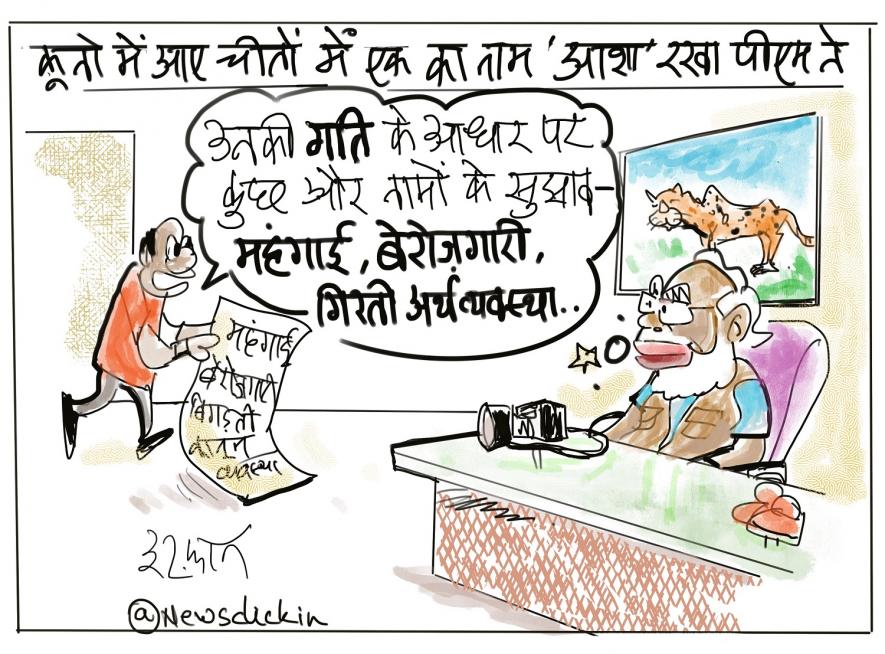 कूनो में आए चीतों में एक का नाम 'आशा' रखा पीएम ने
उनकी गति के आधार पर
कुछ और नामों के सुझाव-
महंगाई, बेरोज़गारी,
गिरती अर्थव्यवस्था..
महंगाई
बेरोजगारी
बिगड़ती
कानून
व्यवस्था
इरफान
@Newsdickin